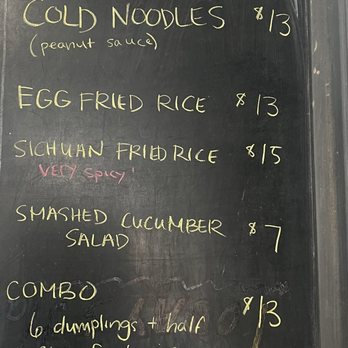 COLD NOODLES $13
(peanut sauce)
EGG FRIED RICE $13
SICHUAN FRIED RICE $15
VERY spicy!
SMASHED CUCUMBER $7
SALAD
COMBO $13
6 dumplings + half